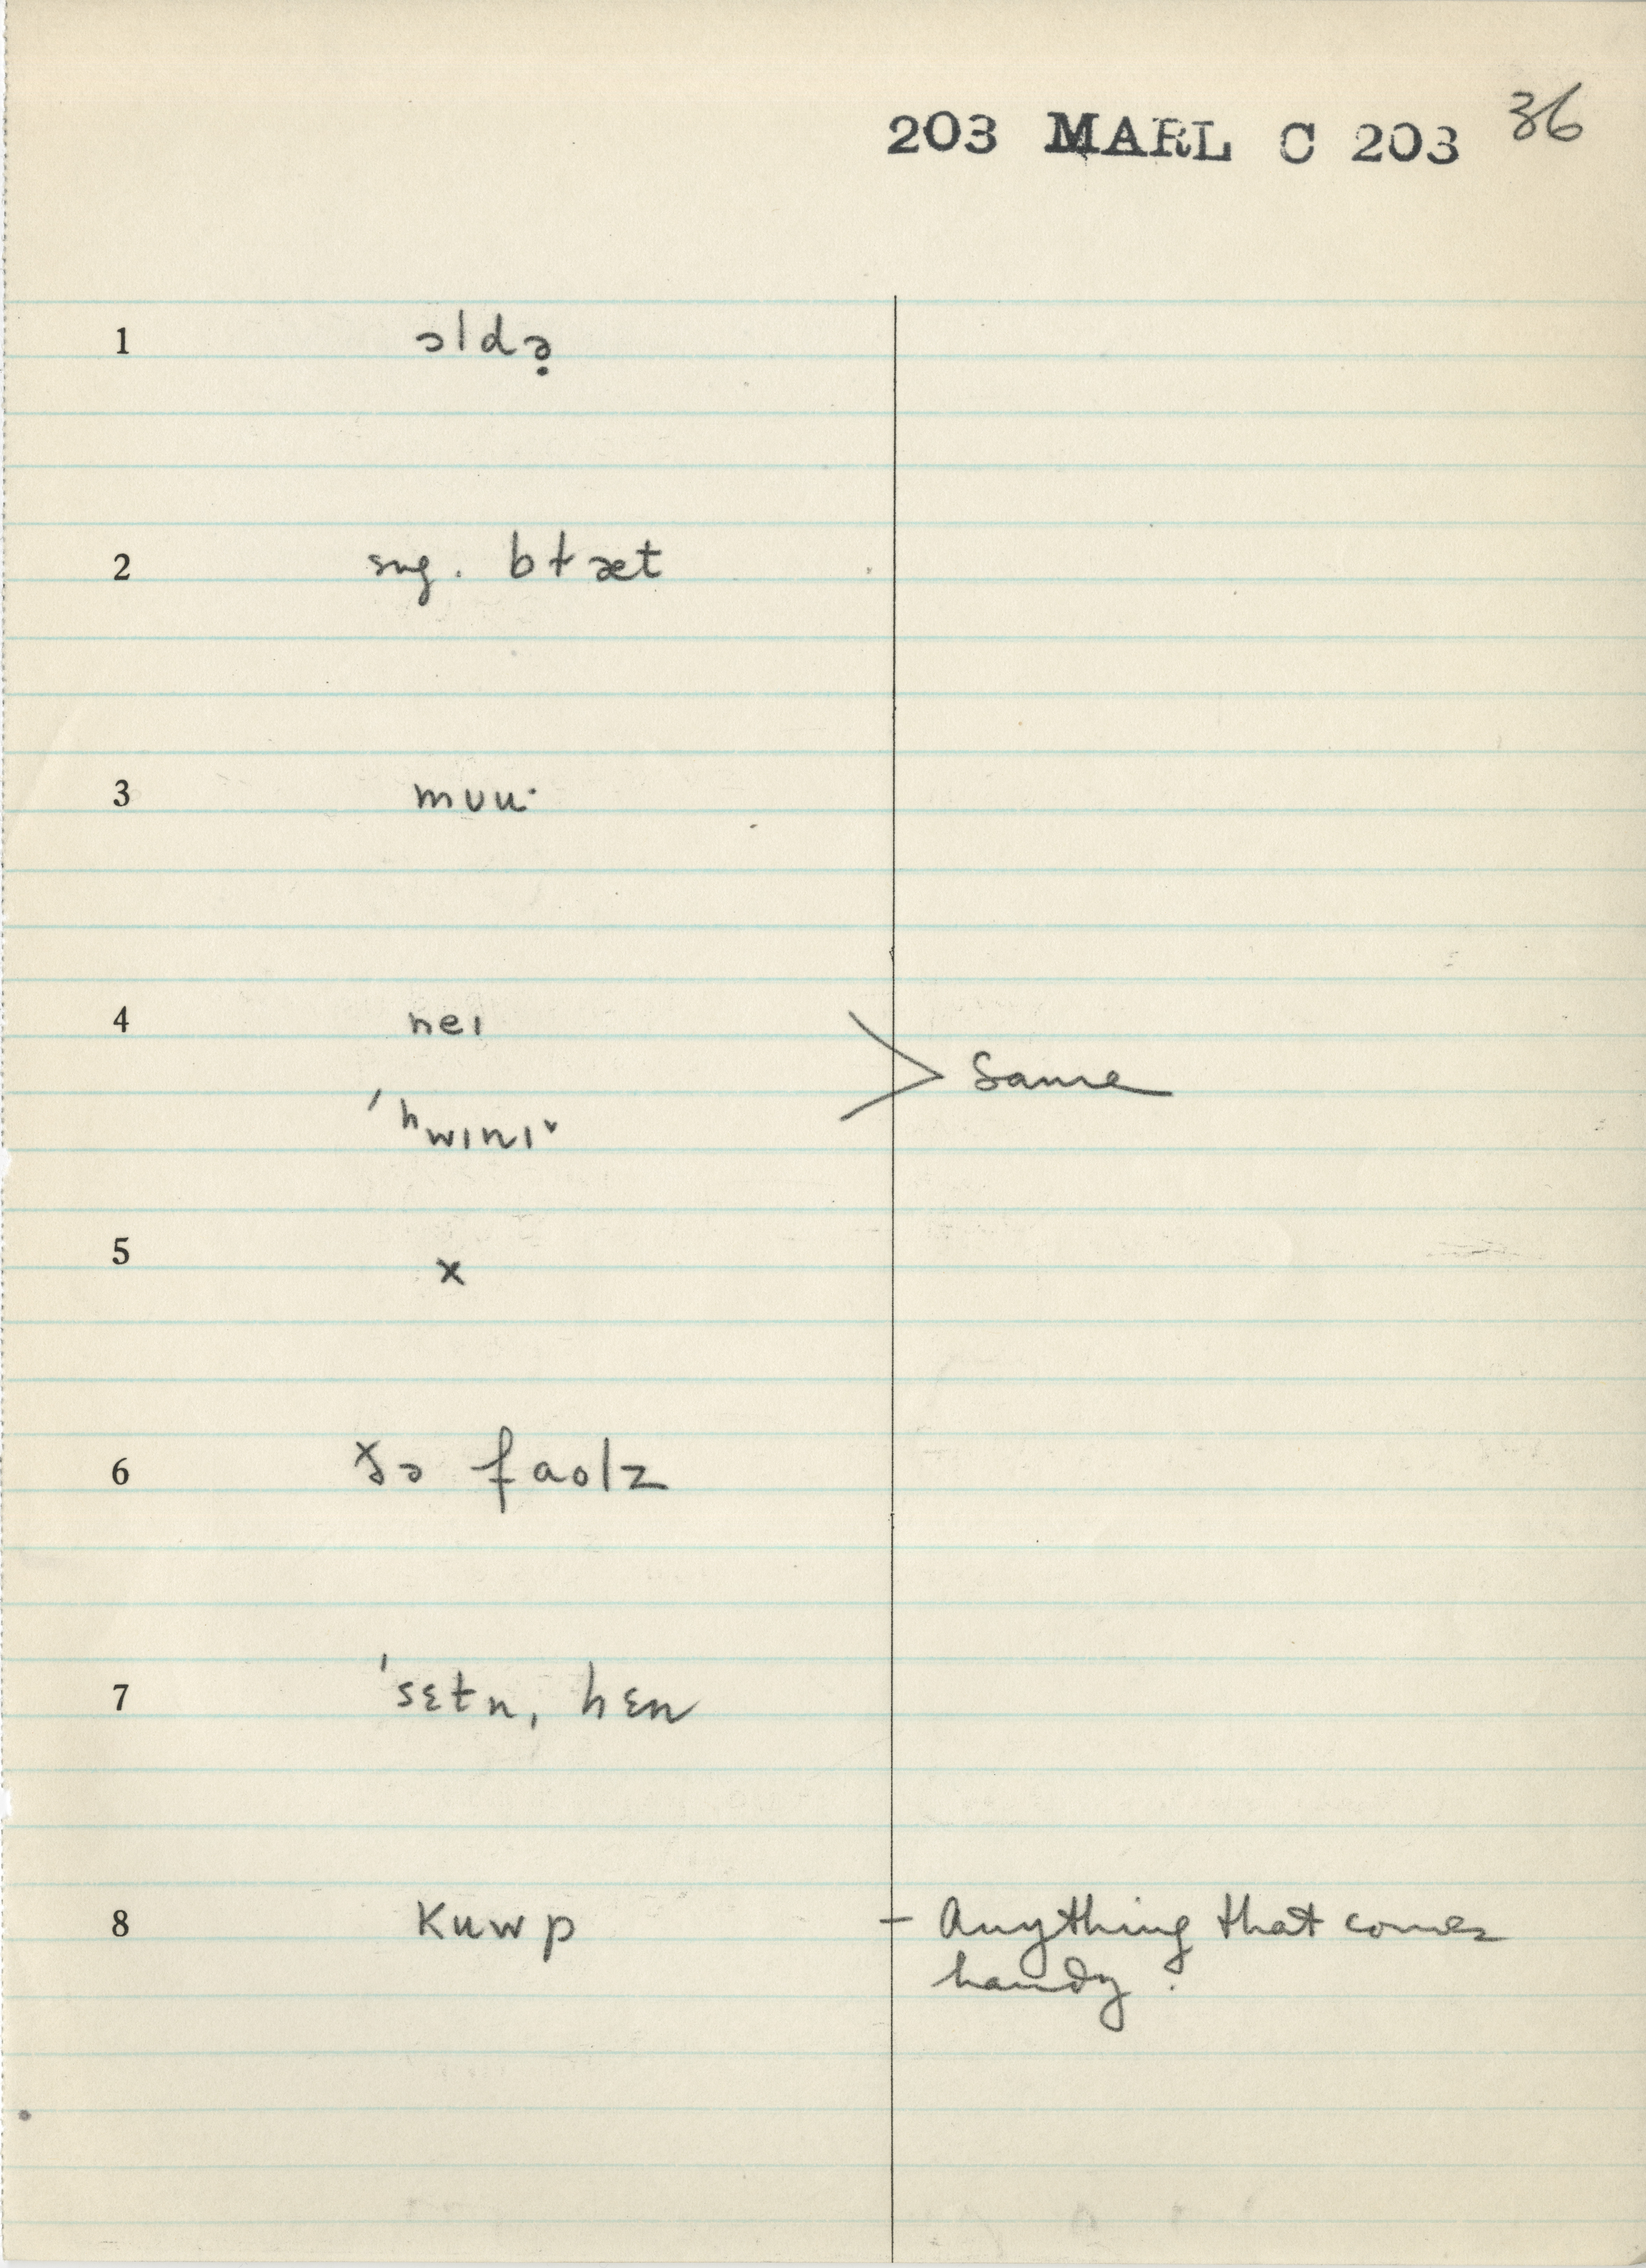 203 MARL C 203 36
1 ɔldə̣
2 sug. bɫæt
3 mʊu·
4 neɪ
> Same
ˈʰwɪnɪˇ
5 x
6 ðə faolz
7 ˈsɛtn, hɛn
8 kuwp – Anything that comes
handy.